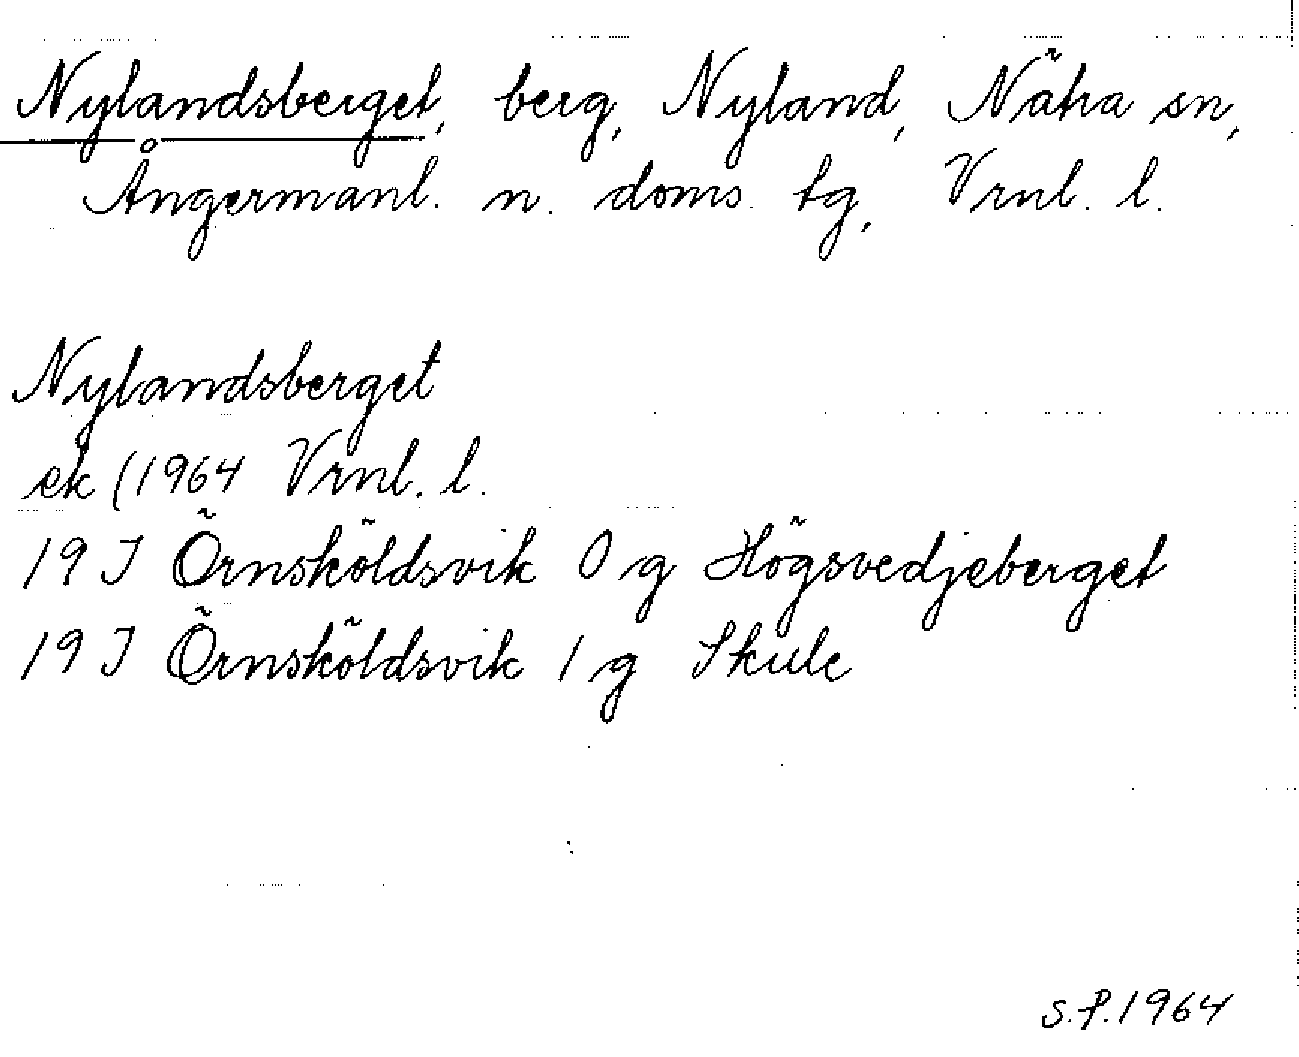 Nylandsberget, berg, Nyland, Nätra sn,
Ångermanl. n. doms. tg, Vrnl. l.
Nylandsberget
ek (1964 Vrnl. l.
19 J Örnsköldsvik 0 g Högsvedjeberget
19 J Örnsköldsvik 1 g Skule
S.P. 1964